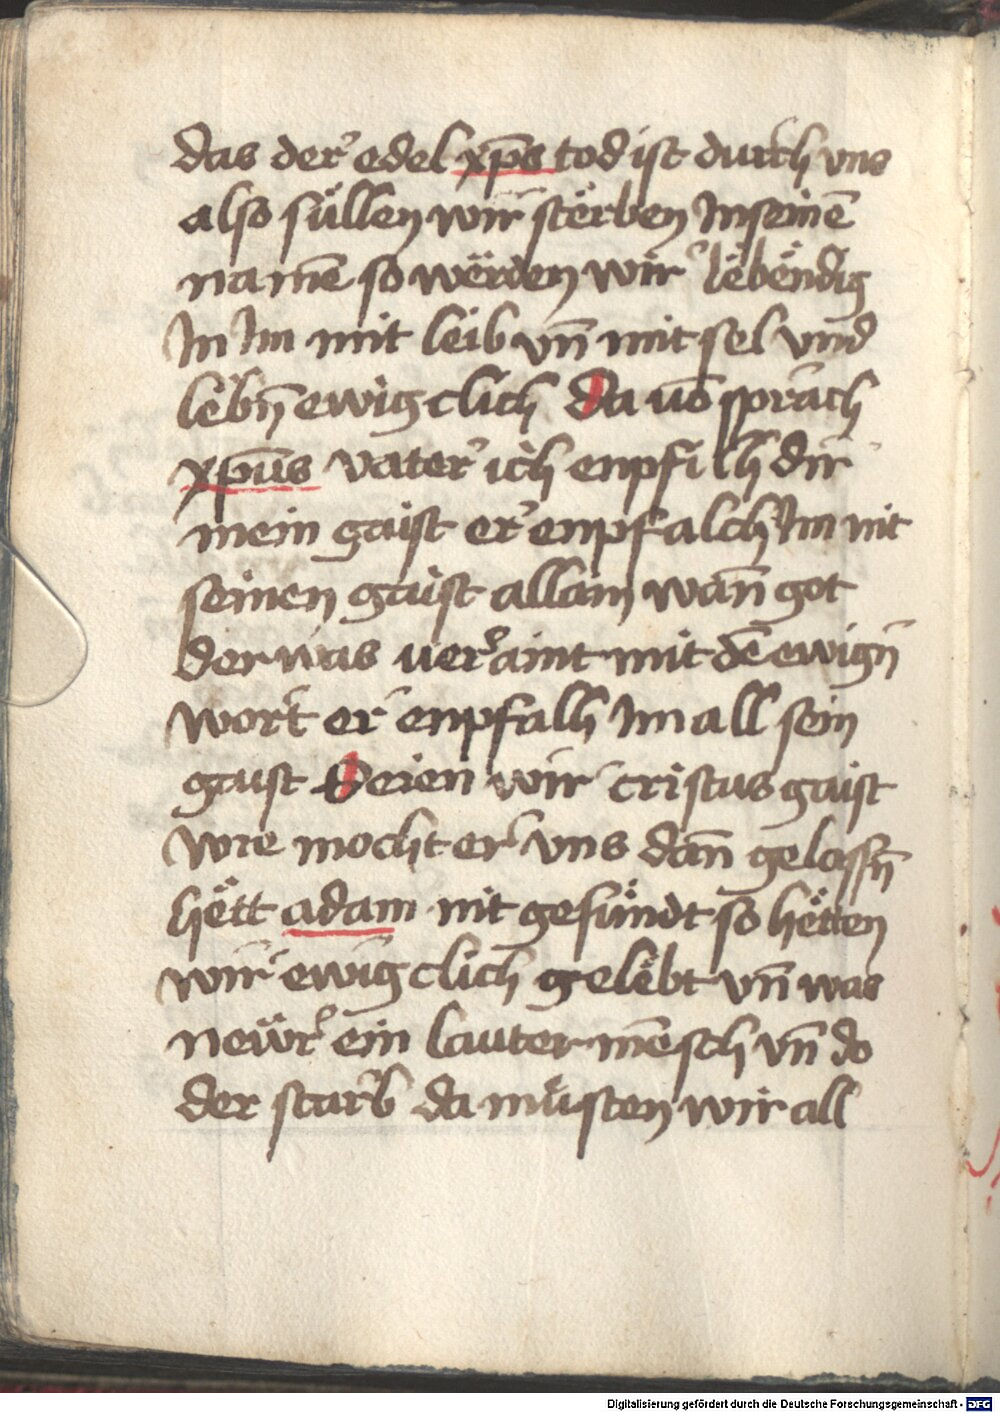 das der edel xp̄s tod ist durch vns
also süllen wir stërben In seinē
namē so wërden wir lëbëndig
In Im mit leib vn̄ mit sel vnd
lëbn̄ ewigclich Da uō sprach
xp̄us vater ich enpfilh dir
mein gaist er enpfalch Im nit
seinen gaist allain wan̄ got
der was ueraint mit dē ewign̄
wort er enpfalh Im all sein
gaist Seien wir cristus gaist
wie mocht er vns dan̄ gelassn̄
hëtt adam nit gesündt so hëtten
wir ewigclich gelëbt vn̄ was
neẅr ein lauter mēsch vn̄ do
der starb da müsten wir all
Digitalisierung gefördert durch die Deutsche Forschungsgemeinschaft - DFG